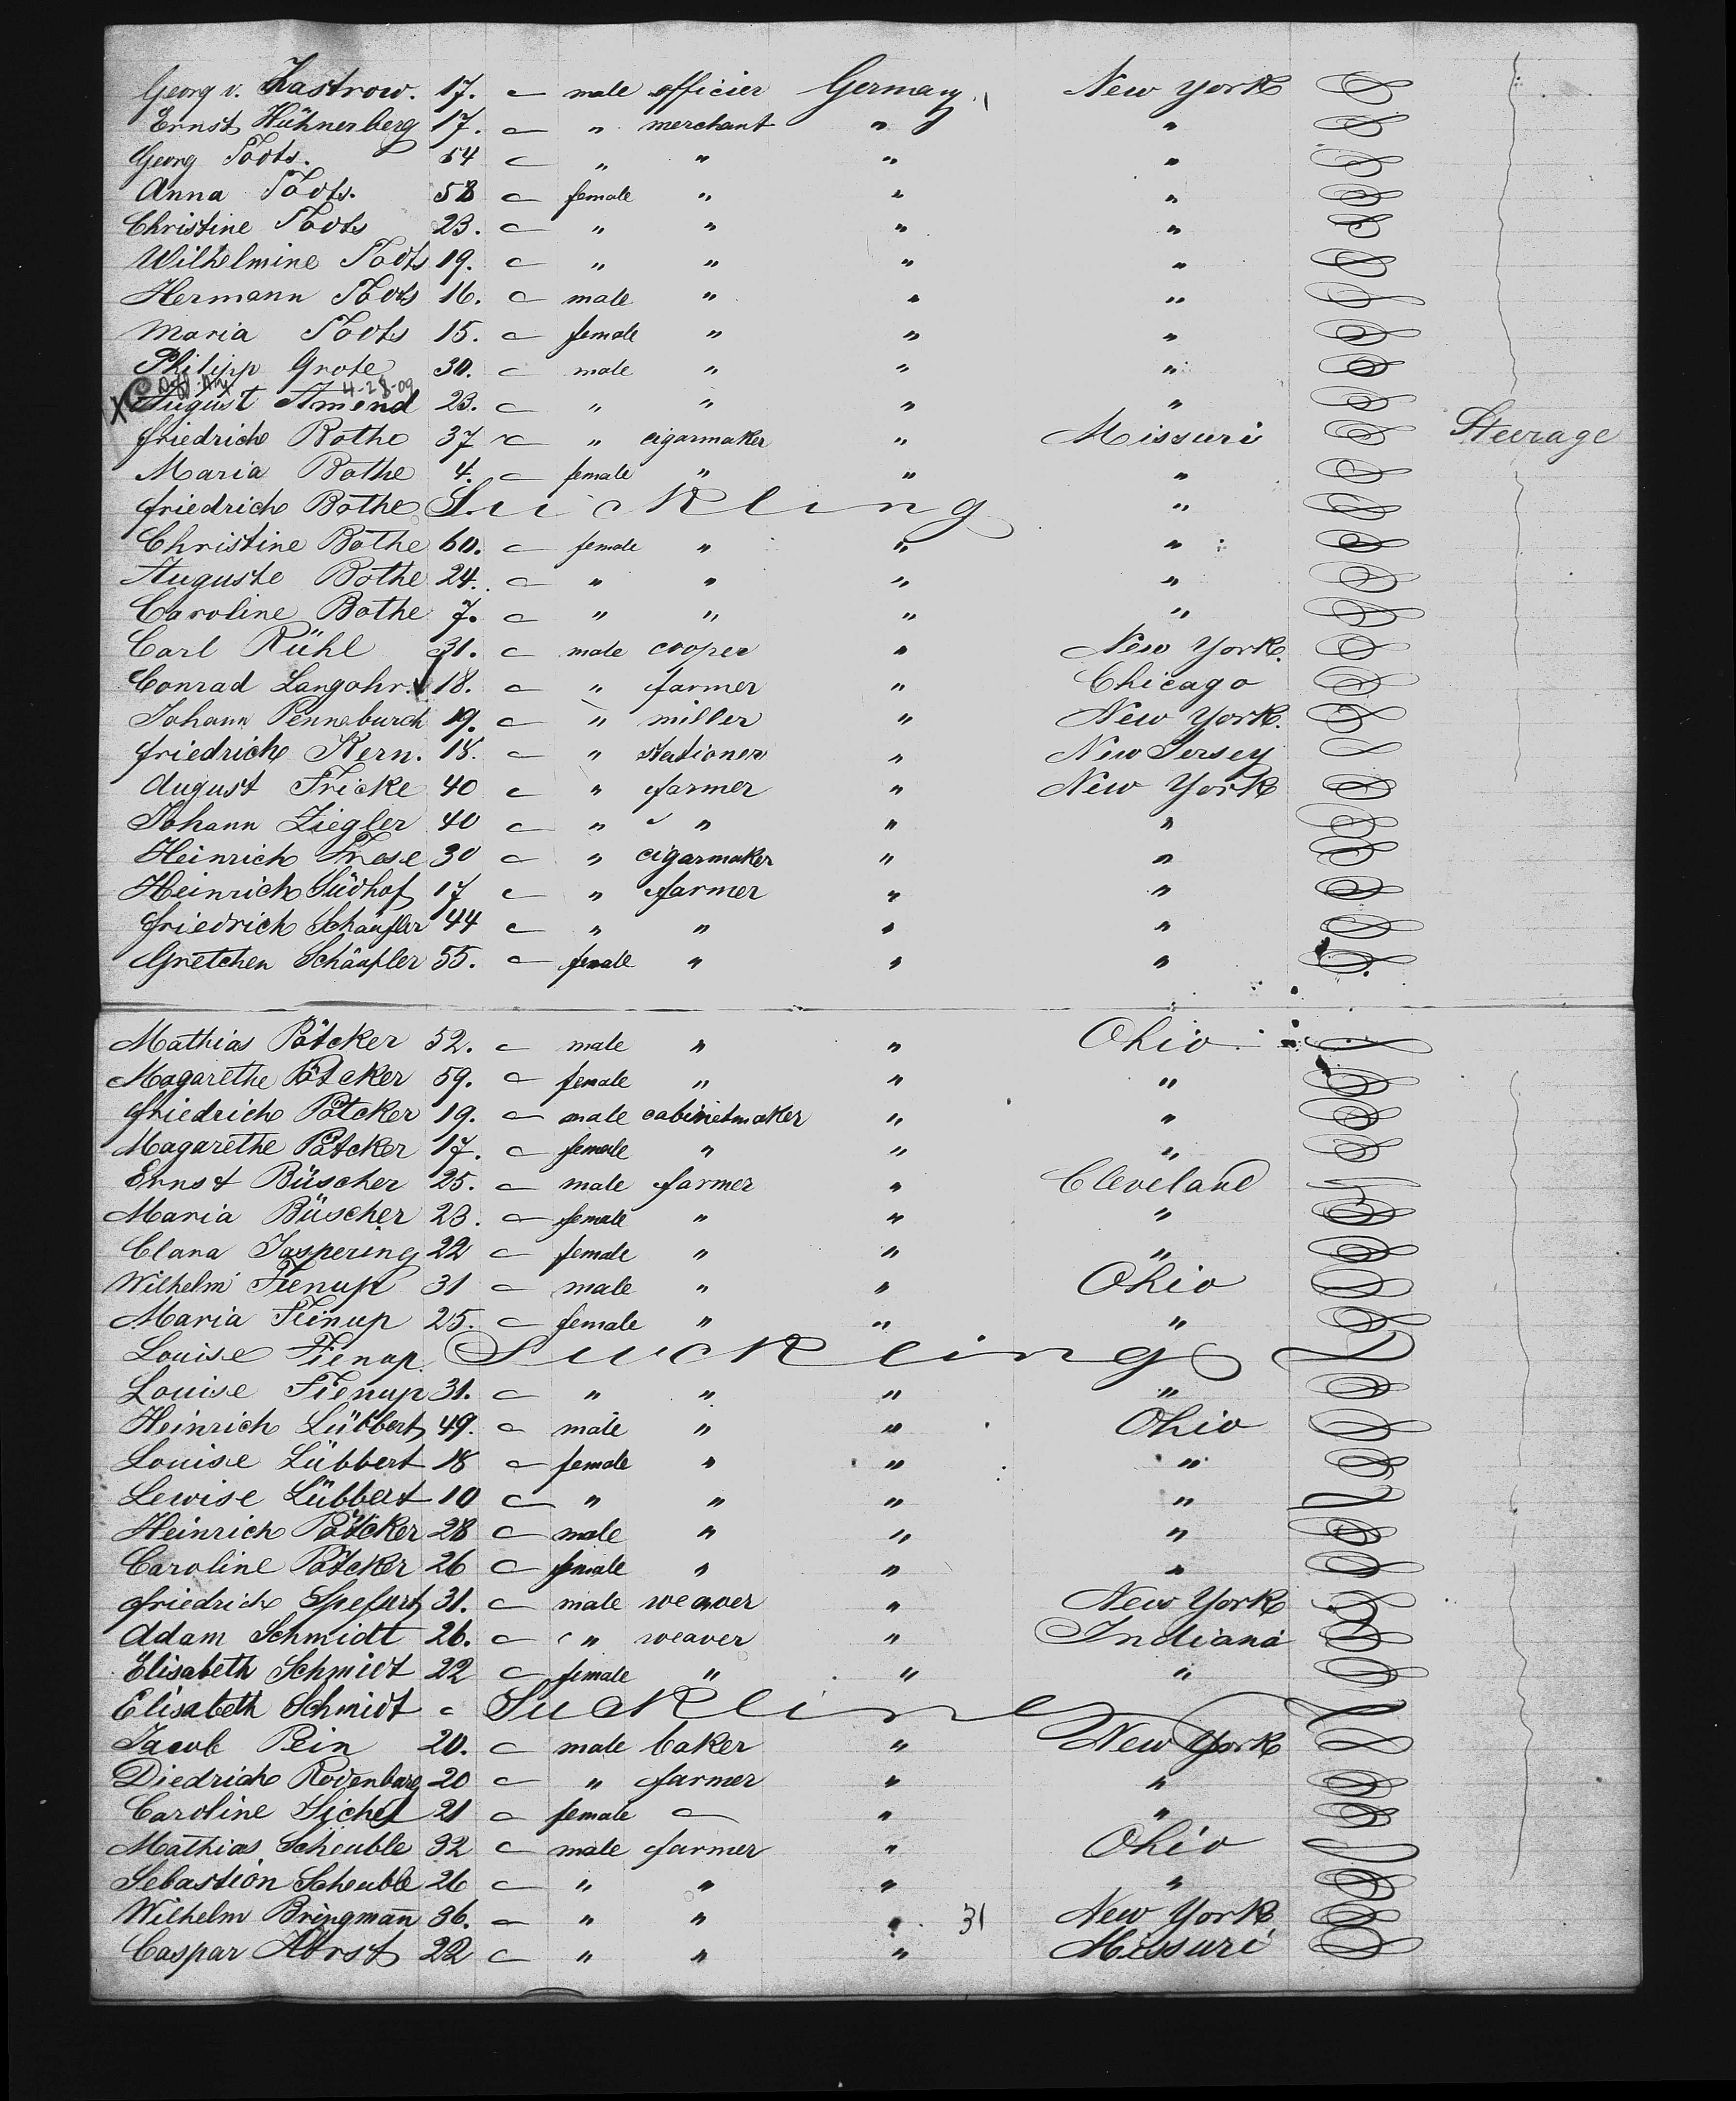 Georg v. Zastrow. 17. male officier Germany New York
Ernst Hühnerberg 17. " merchant " "
Georg Tödts. 54 " " " "
Anna Tödts. 58 female " " "
Christine Tödts 23. " " " "
Wilhelmine Tödts 19. " " " "
Hermann Tödts 16. male " " "
Maria Tödts 15. female " " "
Philipp Grote 30. male " " "
X C Aff. 4-28-09
August Amend 23. " " " "
Friedrich Bothe 37 " cigarmaker " Missuri Steerage
Maria Bothe 4. female " " "
Friedrich Bothe Suckling "
Christine Bothe 60. female " " "
Auguste Bothe 24. " " " "
Caroline Bothe 7. " " " "
Carl Rühl 31. male cooper " New York.
Conrad Langohr. 18. " farmer " Chicago
Johann Penneburch 19. " miller " New York.
Friedrich Kern. 18. " stationer " New Jersey
August Fricke 40 " farmer " New York
Johann Ziegler 40 " " " "
Heinrich Frese 30 " cigarmaker " "
Heinrich Südhof 17 " farmer " "
Friedrich Schäufler 44 " " " "
Gretchen Schäufler 55. female " " "
Mathias Pötcker 52. male " " Ohio
Magarethe Pötcker 59. female " " "
Friedrich Pötcker 19. male cabinetmaker " "
Magarethe Pötcker 17. female " " "
Ernst Büscher 25. male farmer " Cleveland
Maria Büscher 23. female " " "
Clara Jaspering 22 female " " "
Wilhelm Fienup 31 male " " Ohio
Maria Fienup 25. female " " "
Louise Fienup Suckling
Louise Fienup 31. " " " "
Heinrich Lübbert 49. male " " Ohio
Louise Lübbert 18 female " " "
Lewise Lübbert 10 " " " "
Heinrich Pötcker 28 male " " "
Caroline Pötcker 26 female " " "
Friedrich 31. male weaver " New York
Adam Schmidt 26. " weaver " Indiana
Elisabeth Schmidt 22 female " " "
Elisabeth Schmidt Suckling
Jacob Pein 20. male baker " New York
Diedrich Rodenburg 20 " farmer " "
Caroline Sichel 21 female " "
Mathias Scheuble 32 male farmer " Ohio
Sebastion Scheuble 26 " " " "
Wilhelm Bringmann 36. " " " 31 New York
Caspar Horst 22 " " " Missuri